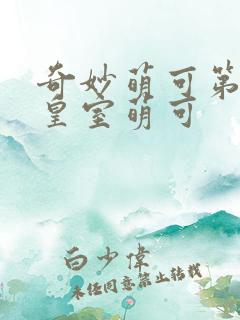 奇妙萌可第
皇室萌可
白少伟
未经同意禁止转载